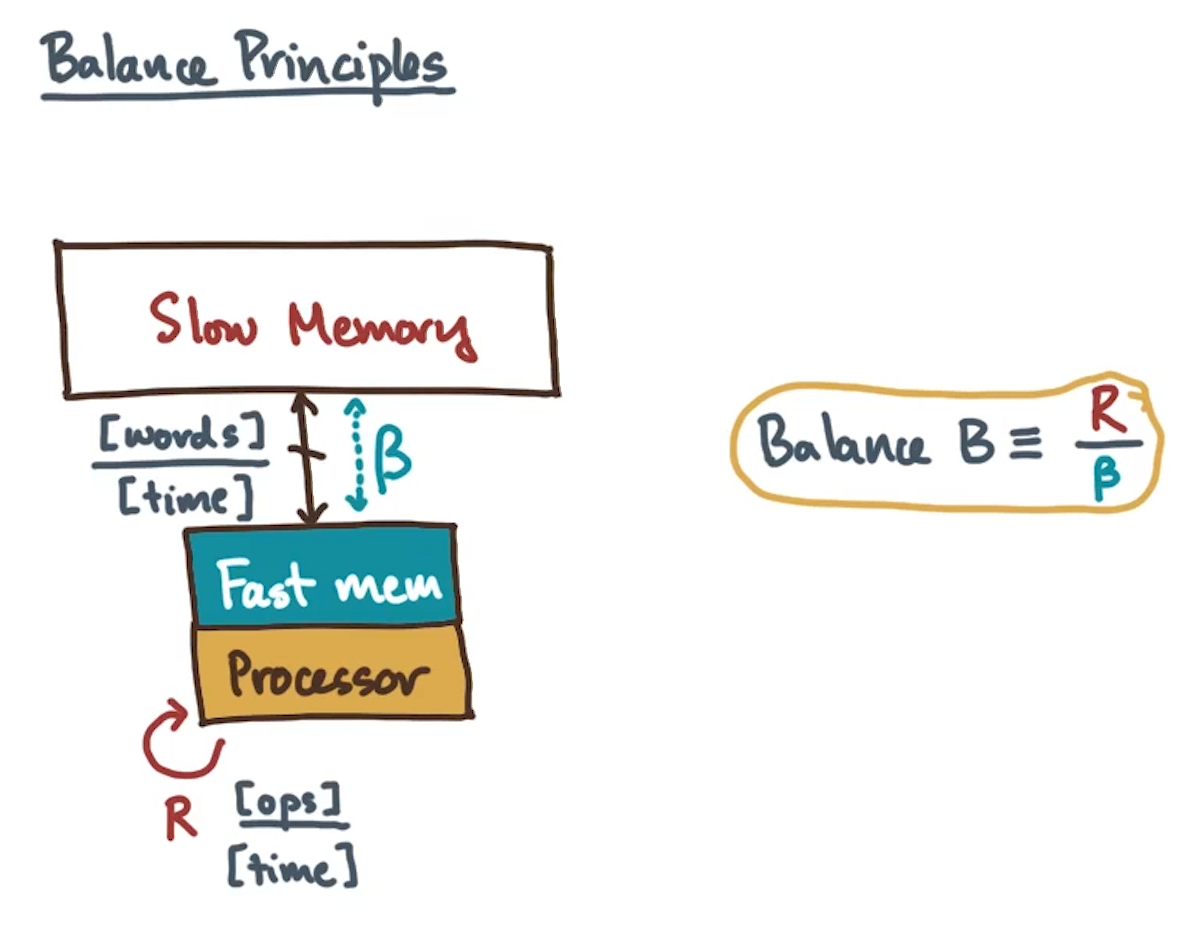 Balance Principles
Slow Memory
[words]
[time]
β
Fast mem
Processor
R
[ops]
[time]
Balance B ≡ R
β